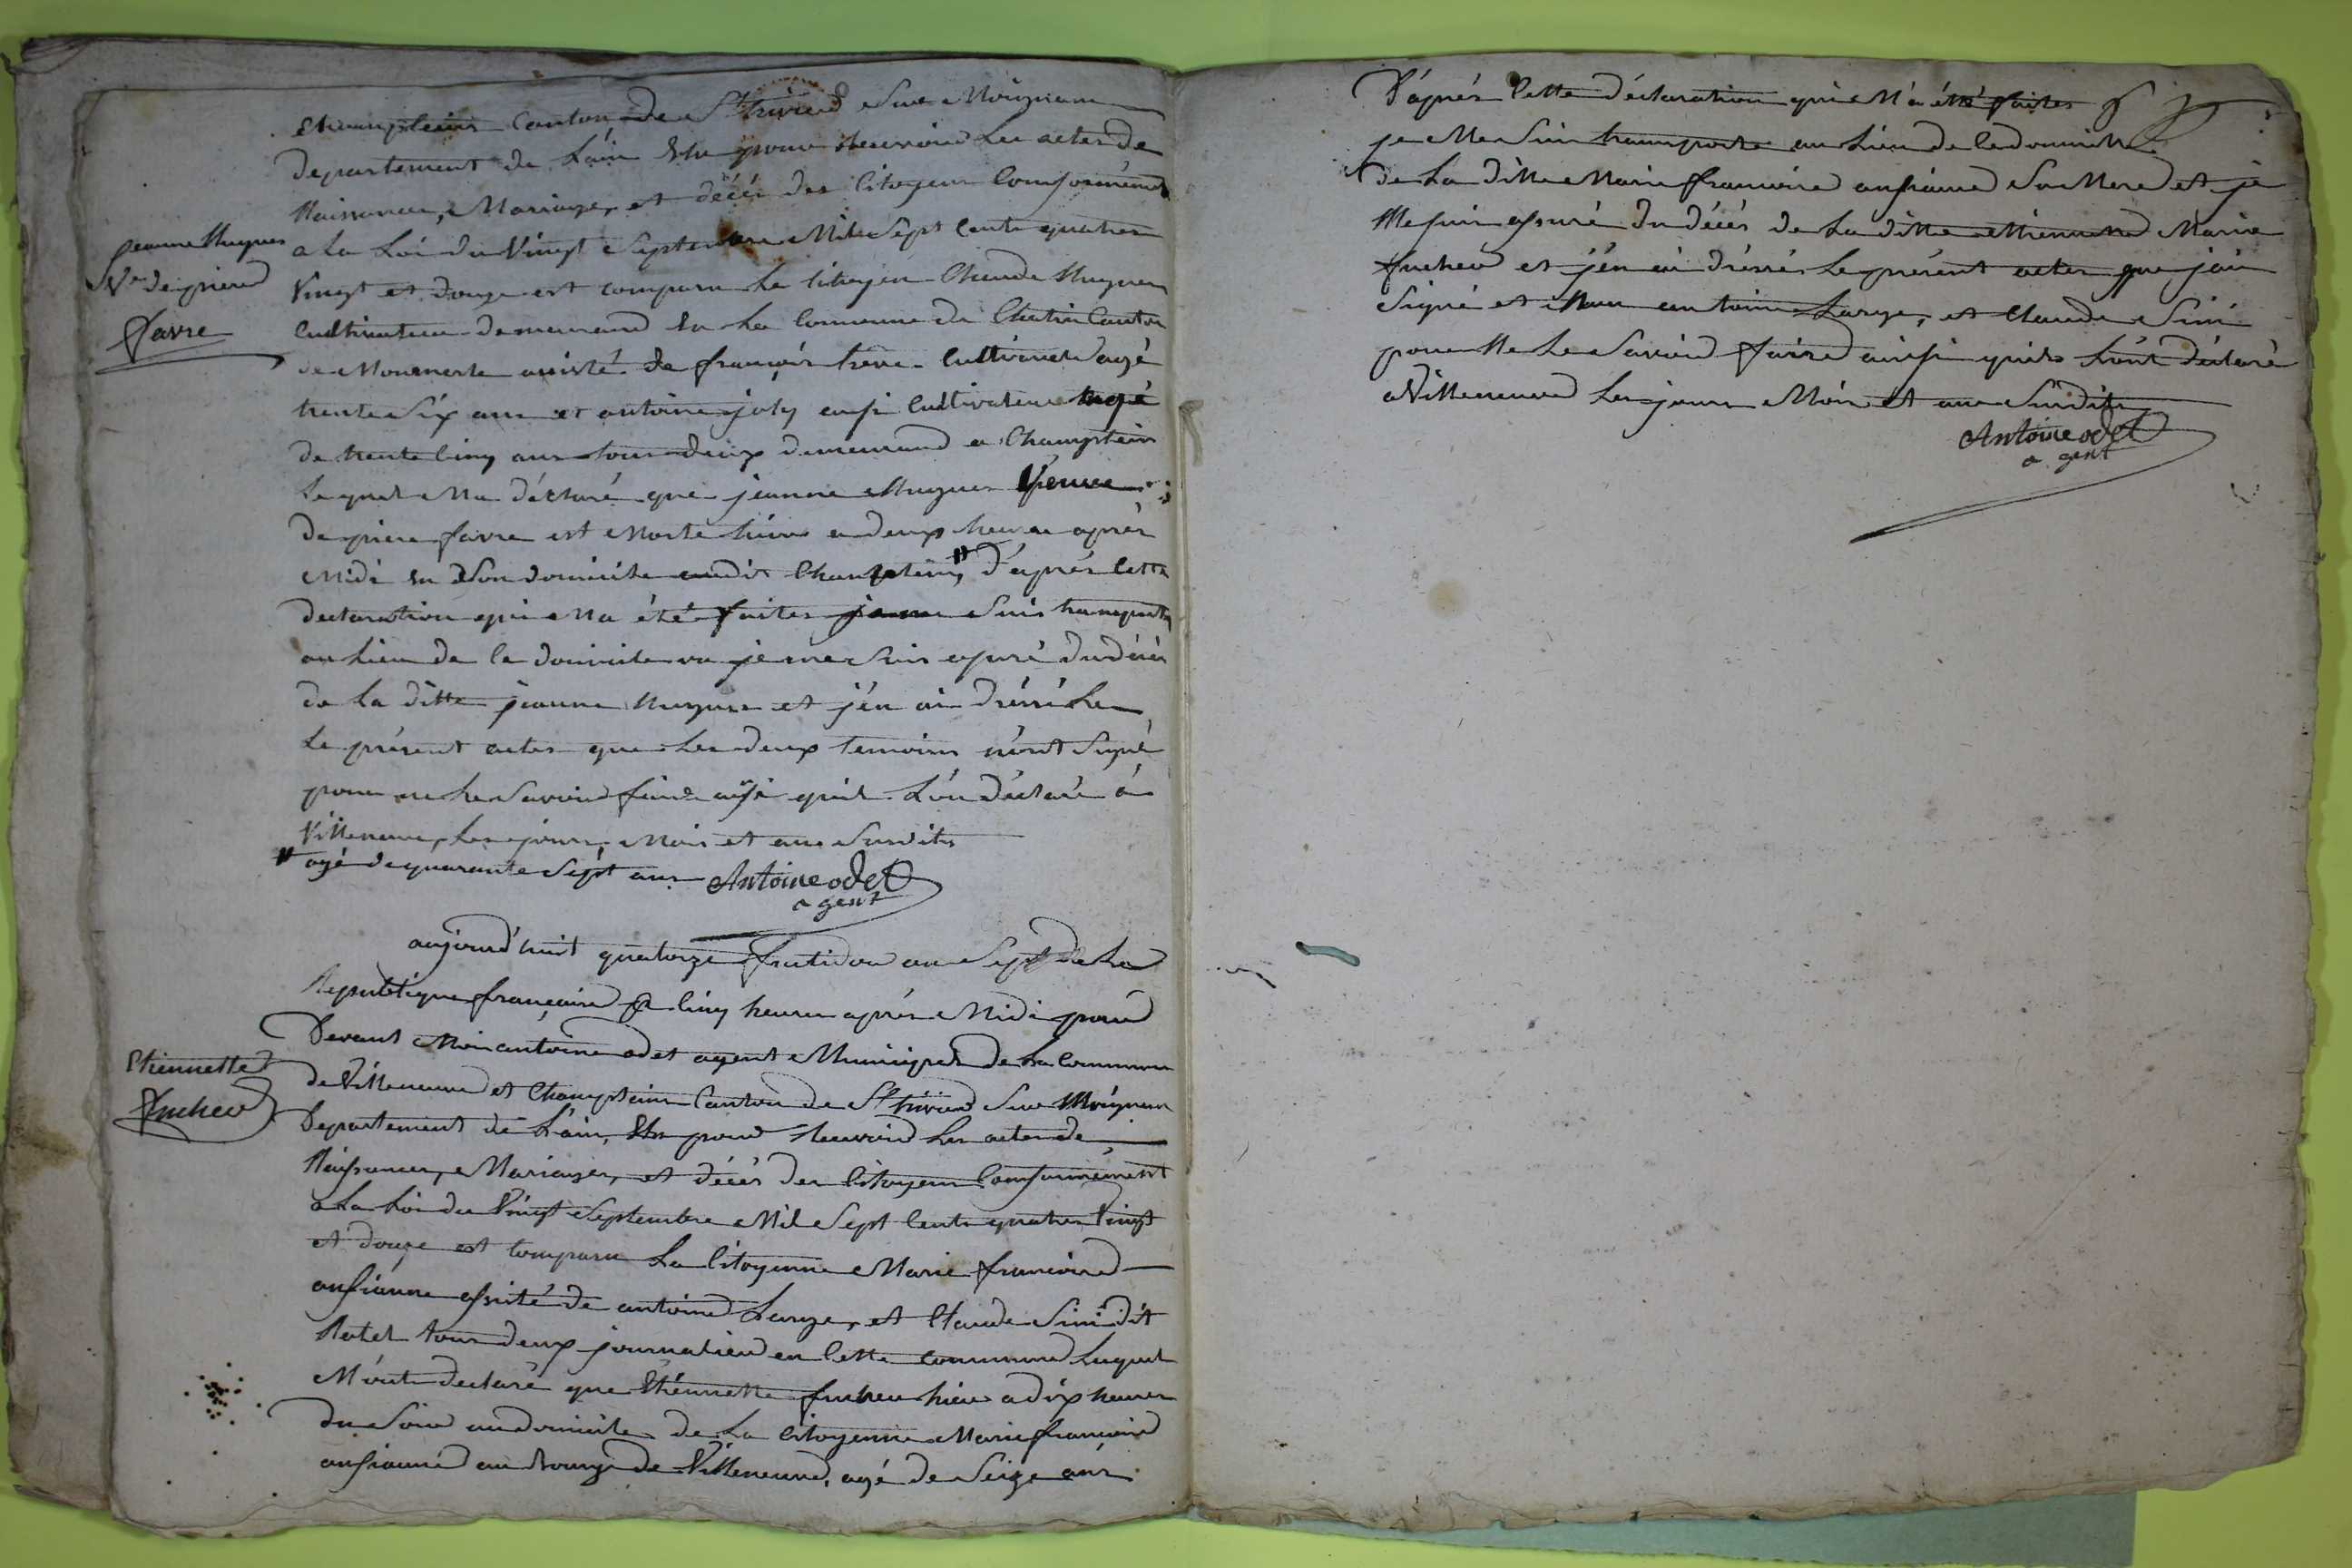 Champteins Canton de St trivier Sur Moignans
departement de Lain Elu pour recevoir Les actes de
Naissances, Mariages et décés des Citoyens Conformément
a La Loi du Vingt Septembre Mile Sept Cents quatres
Jeanne Hugues
Ve de piere
favre
Vingt et douze est comparu Le Citoyen Claude Hugues
Cultivateur demeurand En La Commune de Chatin Canton
de assisté de françois cultivateur agé
trente Six ans et antoine joly ausi Cultivateur agé
de trente Cinq ans tous deux demeurand a Champtein
Le quel Ma déclaré que jeanne Hugues Veuve
de piere favre est Morte hier a deux heures aprés
Midi En Son domicile audit Champtein, # d'aprés Cette
declaration qui Ma été faites je me Suis transporté
au Lieu de Ce domicile je me Suis assuré du décés
de La ditte jeanne Hugues et j'en ai dréssé Le
Le présent actes que Les deux temoins n'ont Signé
pour ne Le Savoir faire ausi quil L'on déclaré á
Villeneuve Les jours, Mois et ans Susdits
# agé de quarante Sépt ans Antoine odet
agent
aujourd'huit quatorze frutidor an Sept de La
Republique françaire a Cinq heures aprés Midi pard
Devant Moi antoine odet agent Municipal de La Commune
Etiennette
fucheu
de Villeneuve et Champteins Canton de St trivier Sur Moignans
Departement de L'ain, Elu pour recevoir Les actes de
Naissances, Mariages, et décés des Citoyens Conformément
a La Loi du Vingt Septembre Mil Sept Cents quatres Vingt
et douze est comparu La Citoyenne Marie francoise
anfianne assité de antoine Large, et Claude Sini dit
tous deux journalier en Cette commune Lequel
M'ont declaré que Etiennette fucheu hier a dix heures
du Soire au domicile de La Citoyenne Marie francoise
anfianne au bourg de Villeneuve, agé de Seize ans
D'áprés Cette déclaration qui M'a été faites
je Me Suis transporté au Lieu de Ce domicile
de La ditte Marie francoise anfianne Sa Mere et je
Me suis assuré du décés de La ditte Etiennette Marie
fucheu et j'en ai dréssés Le présent actes que j'ai
Signé et Non antoine Large, et Claude Sini
pour Ne Le Savoir faire ainsi quils L'ont déclaré
a Villeneuve Les jours Mois et ans Susdits
Antoine odet
agent